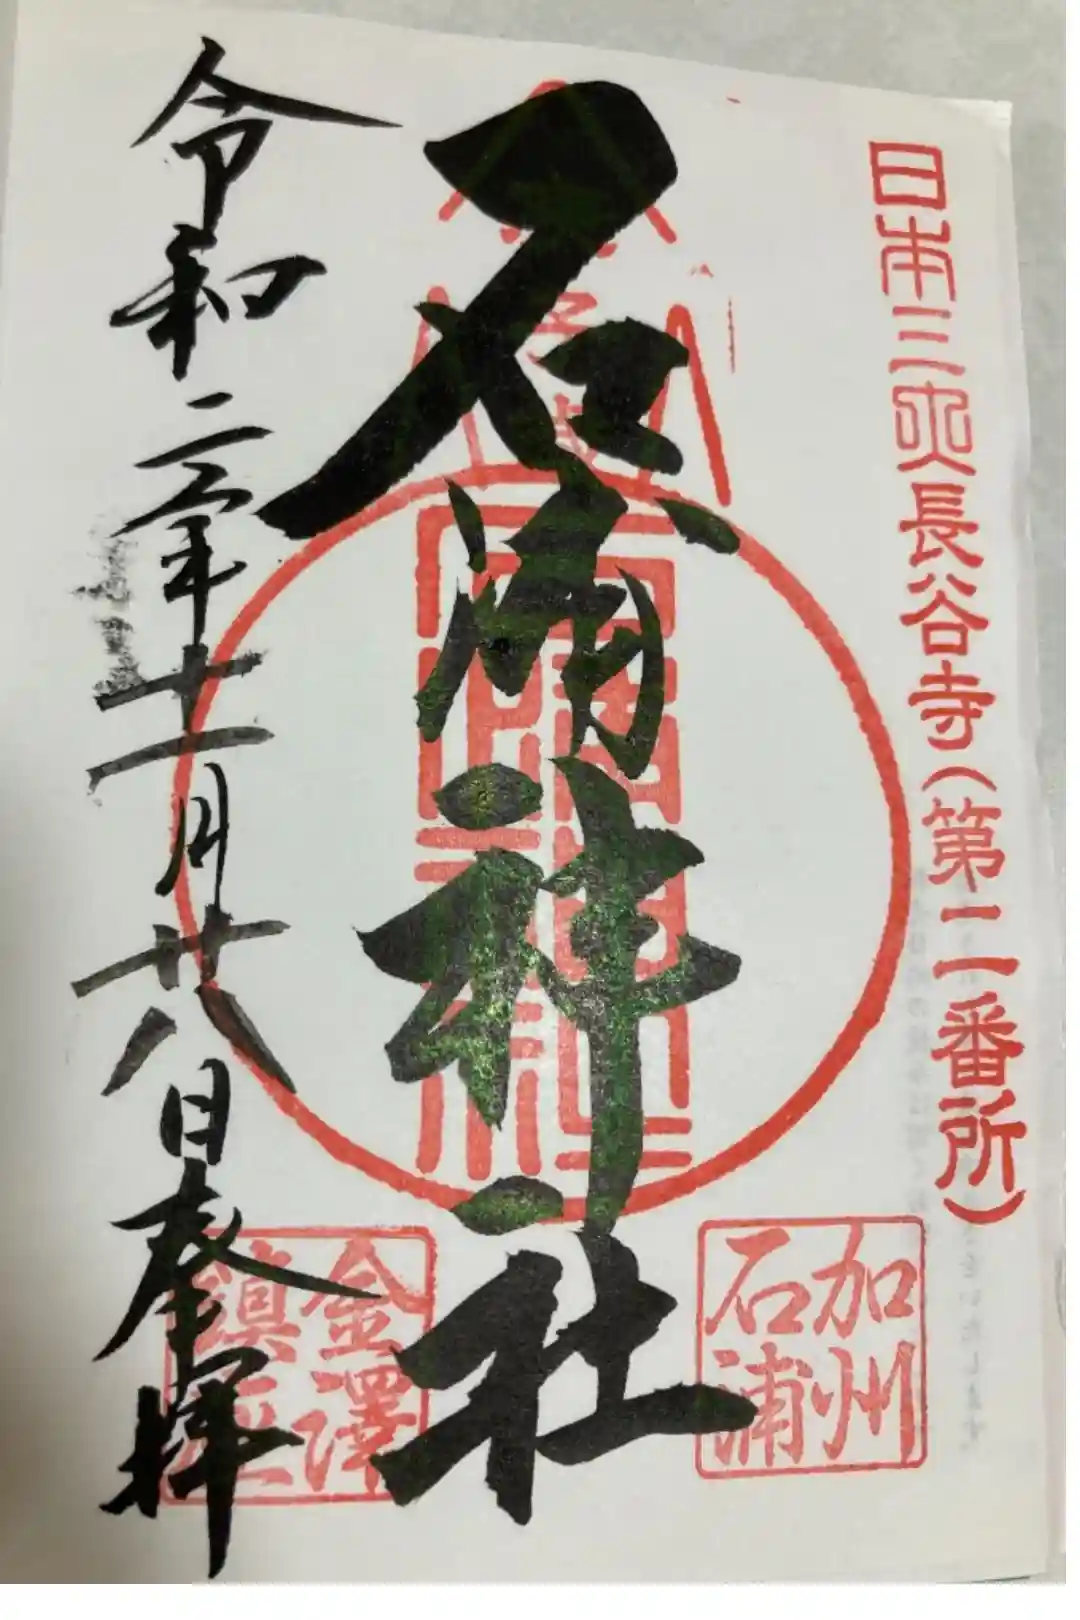 日本三大長谷寺(第二番所)
石浦神社
加州
石浦
金澤
鎮座
令和二年十一月廿八日奉拝